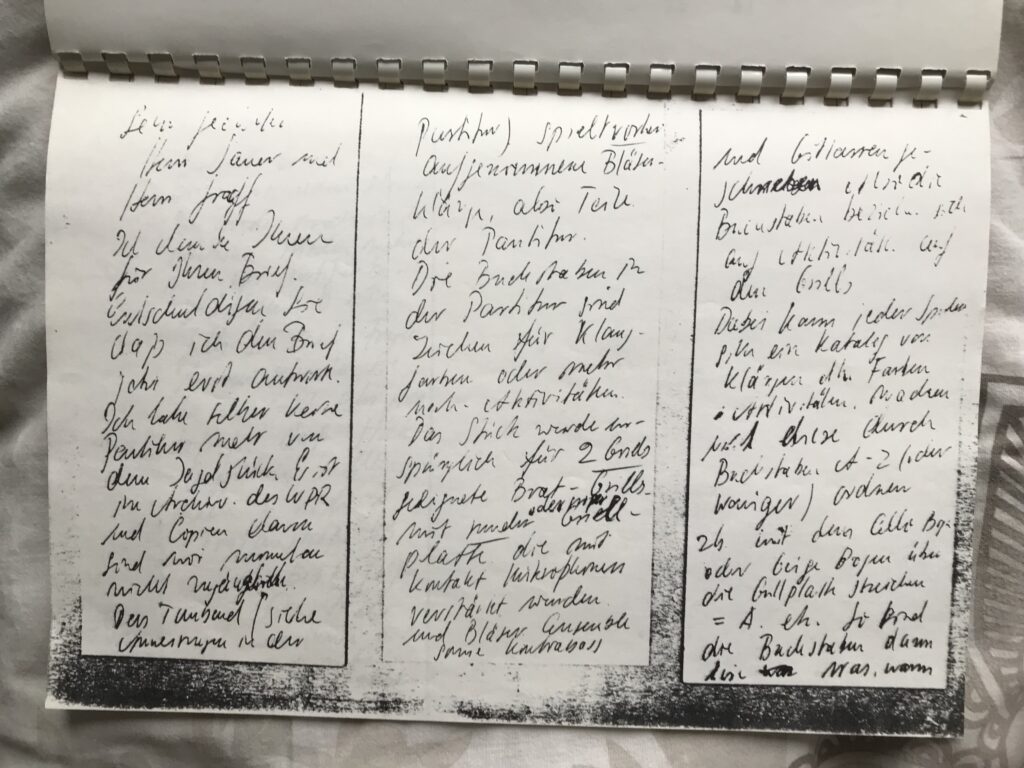 Sehr geehrter
Herr Sauer und
Herr Graff
Ich danke Ihnen
für Ihren Brief.
Entschuldigen Sie
daß ich den Brief
jetzt erst antwort.
Ich habe selber keine
Partitur mehr von
dem Jagdstück Er ist
im Archiv. des WDR
und Copien davon
sind mir momentan
nicht zugänglich.
Das Tonband (siehe
Anweisungen in der
Partitur) spielt vorher
aufgenommene Bläser-
klänge, also Teile
der Partitur.
Die Buchstaben in
der Partitur sind
Zeichen für Klang-
farben oder mehr
noch. Aktivitäten.
Das Stück wurde ur-
sprünglich für 2 Grills
geeignete Brat-Grills-
mit runder oder Grill-
platte die mit
Kontakt Mikrophonen
verstärkt wurden.
und Bläser Ensemble
sowie Kontrabass
und Gitarren ge-
schrieben also die
Buchstaben beziehen sich
auf Aktivität. auf
den Grills
Dabei kann jeder Spieler
sich ein Katalog von
Klängen oder Farben
Aktivitäten. machen
und diese durch
Buchstaben A-Z (oder
weniger) ordnen
zb mit dem Cello Bogen
oder Geige Bogen über
die Grillplatte streichen
= A. etc. So sind
die Buchstaben dann
die was, wann